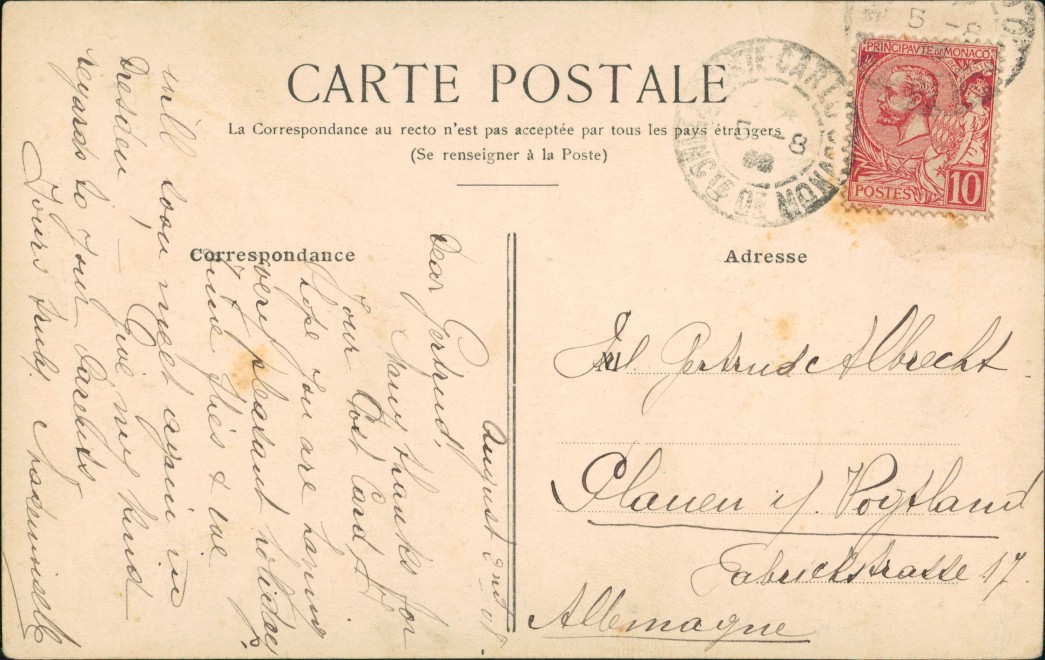 CARTE POSTALE
La Correspondance au recto n'est pas acceptée par tous les pays étrangers
(Se renseigner à la Poste)
MONTE-CARLO
5 -8
08
PRINCTÉ DE MONACO
5 -8
PRINCIPAVTE DE MONACO
POSTES
10
Correspondance
Adresse
August 2nd 08
Dear Gertrud.
Many thanks for
your Post Card I
hope you are having
very pleasant holidays
time flies & we
will soon meet again in
Dresden, — Give my kind
regards to your Parents
Yours truly
Mademoiselle
Frl. Gertrude Albrecht
Plauen i/ Vogtland
Fabrickstrasse 17.
Allemagne